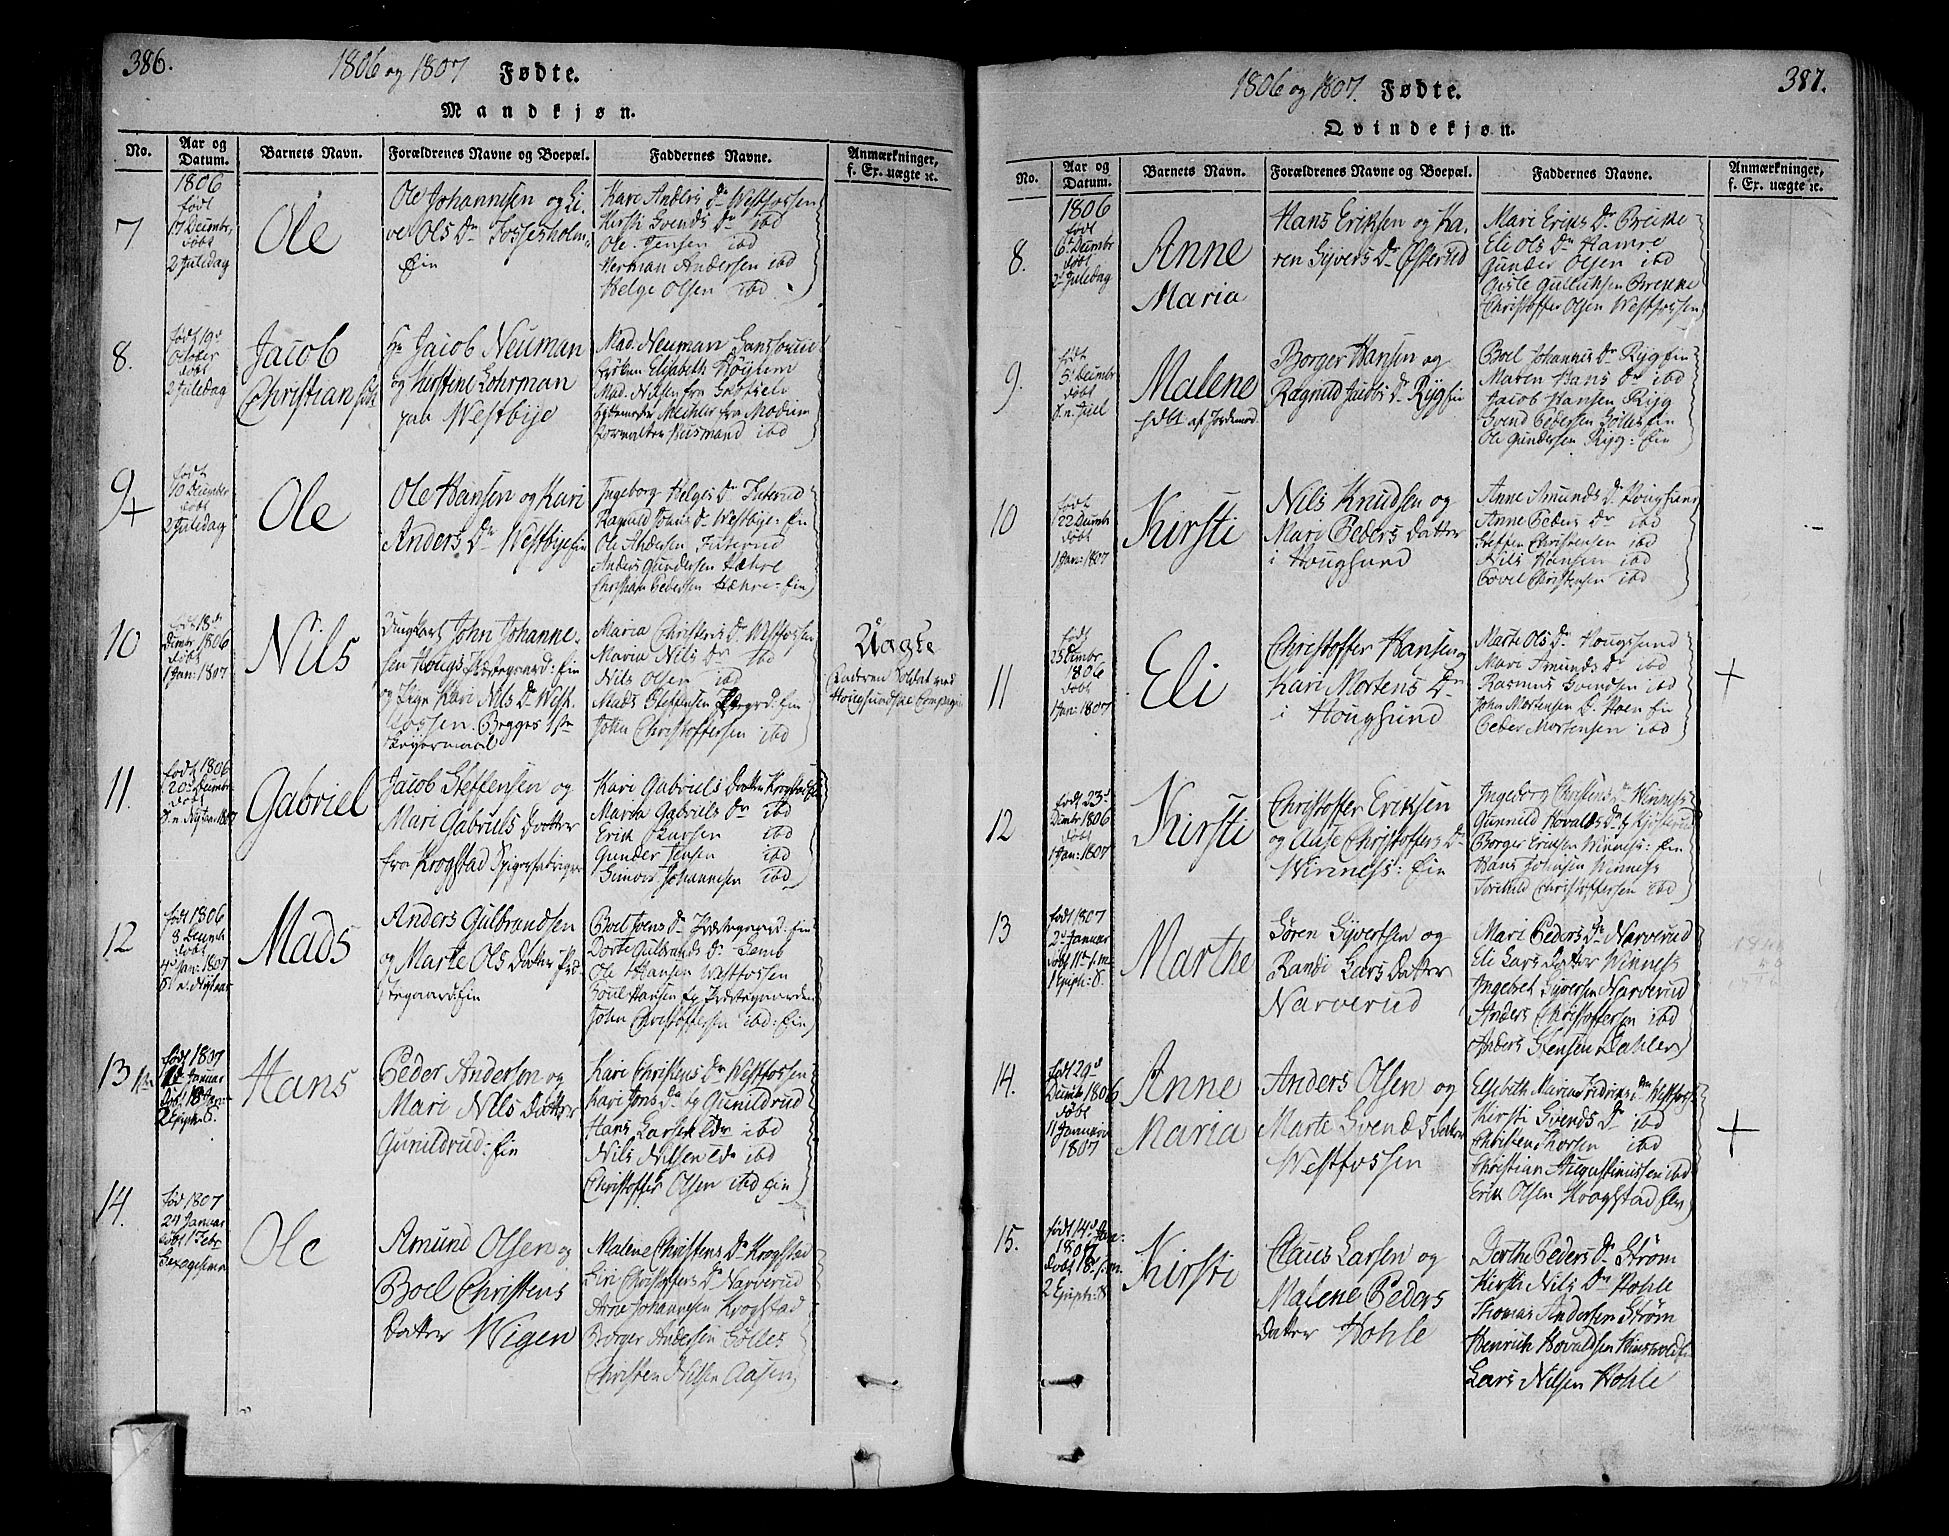 386.
1806 og 1807 Fødte.
Mandkjøn.
No.
Aar og Datum.
Barnets Navn.
Forældrenes Navne og Boepæl.
Faddernes Navne.
Anmærkninger, f. Ex. uægte ꝛc.
7
1806
født
17 Decembr.
døbt
2 Juledag
Ole
Ole Johannesen og Li-
ve Ols Dr Fossesholm-
Ein
Kari Anders Dr Westfossen
Kirsti Svends Dr ibd
Ole Jensen ibd
Herman Andersen ibd
Helge Olsen ibd
8.
født 19d
October
døbt
2 Juledag
Jacob
Christian
Hr Jacob Neuman
og Kerstine Lohrman
paa Westbye
Mad. Neuman
Elisabeth
Mad. Nilsen fra
fra Modum
ibd
9
+
født
10 December
døbt
2 Juledag
Ole
Ole Hansen og Kari
Anders Dr Westbyeein
Ingeborg Helges Dr
Ragnild Johns Dr Westbye: Ein
Ole Andersen
Anders Gundersen Hæhre
Christian Pedersen Hæhre: Ein
10
født 18de
Decmbr 1806
døbt
1 Jan: 1807
Nils
Ungkarl John Johanne-
sen Hougs Præstegaard: Ein
og Pige Kari Nils Dr West-
fossen. Begges 1ste
Leiermaal
Maria Christens Dr Westfossen
Maria Nils Dr ibd
Nils Olsen ibd
Mads Steffensen Ein
John Christoffersen ibd
Uægte
Faderen Soldat ved
Hougsundske Compagnie
11.
født 1806
20d Decembr
døbt
Gabriel
Jacob Steffensen og
Mari Gabriels Datter
fra Krogstad Spigerfabrique
Kari Gabriels Datter Krogstad
Maria Gabriels Dr ibd
Erik Larsen ibd
Gunder Jensen ibd
Johannesen ibd
12
født 1806
8 Decmbr
døbt
4d Jan: 1807
Mads
Anders Gulbrandsen
og Marte Ols Datter Præ-
stegaard: Ein
Dorte Gulbrands Dr
Ole Hansen Westfossen
Poul Hansen Præstegaarden
John Christoffersen ibd: Ein
13
født 1807
Januar
Hans
Peder Andersen og
Mari Nils Datter
Gunildrud: Ein
Kari Christens Dr Westfossen
Kari Jons Dr Gunildrud
Hans Larsen ibd
Nils Nilsen ibd
Christoffer Olsen ibd Ein
14.
fød 1807
24 Januar
døbt 1 Febr
Sexagesima
Ole
Amund Olsen og
Boel Christens
Datter Wigen
Malene Christens Dr Krogstad
Siri Christoffers Dr Narverud
Arne Johannesen Krogstad
Borger Andersen
Christen Nilsen Aasen
387.
1806 og 1807. Fødte.
Qvindekjøn.
No.
Aar og Datum.
Barnets Navn.
Forældrenes Navne og Boepæl.
Faddernes Navne.
Anmærkninger, f. Ex. uægte ꝛc.
8.
1806
født
6te Decmbr
døbt
2d Juledag
Anne
Maria
Hans Eriksen og Ka-
ren Syvers Dr Østerud
Mari Eriks Dr Brekke
Eli Ols Dr Hamre
Gunder Olsen ibd
Gulliksen Brekke
Christoffer Olsen Westfossen
9.
født
5d Decmbr
døbt
Malene
døbt af Jordemod.
Borger Hansen og
Ragnild Jacobs Dr Rygein
Boel Johannis Dr Rygein
Maren Hans Dr ibd
Jacob Hansen Ryg
Svend Pedersen
Ole Gundersen Ryg: Ein
10
født
22 Decmbr
døbt
1 Jan: 1807
Kirsti
Nils Knudsen og
Mari Peders Datter
i Hougsund
Anne Amunds Dr Hougsund
Anne Peders Dr ibd
Steffen Christensen ibd
Nils Hansen ibd
Povel Christensen ibd
11
født
25 Decmbr
1806
døbt
1 Jan: 1807
Eli
Christoffer Hansen og
Kari Mortens Dr
i Hougsund
Marte Ols Dr Hougsund
Mari Amunds Dr ibd
Rasmus Svendsen ibd
John Mortensen Hoen Ein
Peder Mortensen ibd
+
12
født 23d
Decmbr 1806
døbt
1 Jan: 1807
Kirsti
Christoffer Eriksen
og Aase Christoffers Dr
Winness: Ein
Ingeborg Christens Dr Winness
Gunnild Hovalds Dr
Borger Eriksen Winness: Ein
Hans Johnsen Winness
Torkild Christoffersen ibd
13
født 1807
2d Januar
døbt 11te s. m.
1 Epiph: S.
Marthe
Søren Syvertsen og
Randi Lars Datter
Narverud
Mari Peders Dr Narverud
Eli Lars Datter Winness
Ingebret Syversen Narverud
Anders Christoffersen ibd
Anders Stensen Dahler
14.
født 29d
Decmb 1806
døbt
11 Januari
1807
Anne
Maria
Anders Olsen og
Marte Svends Datter
Westfossen
Elsebeth Maria Fredriks Dr Westfoss
Kirsti Svends Dr ibd
Christen Thorsen ibd
Christian Augustinussen ibd
Erik Olsen Krogstad Elv
+
15.
født 14d Jan:
1807
døbt 18d s. m.
2 Epiph: S
Kirsti
Claus Larsen og
Malene Peders
Datter Hohle
Dorthe Peders Dr Strøm
Kirsti Nils Dr Hohle
Thomas Andersen Strøm
Henrich Hovaldsen
Lars Nilsen Hohle